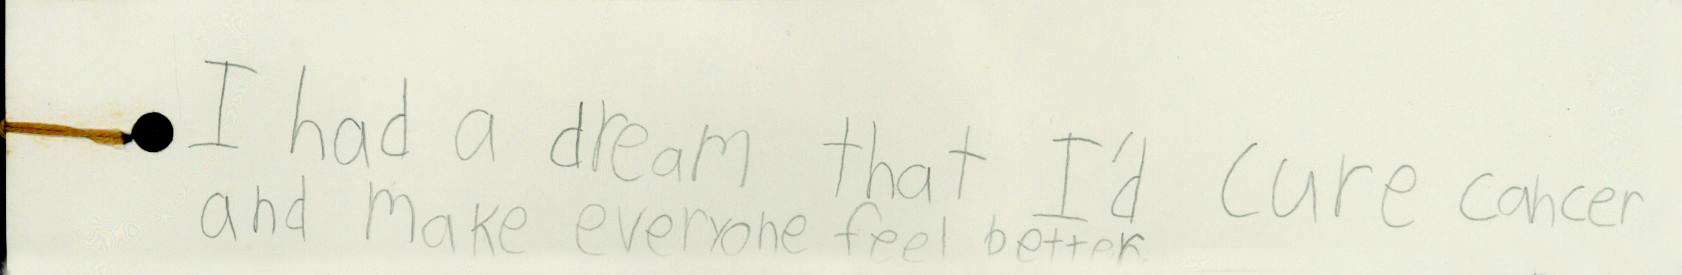 I had a dream that I'd cure cancer
and make everyone feel better.